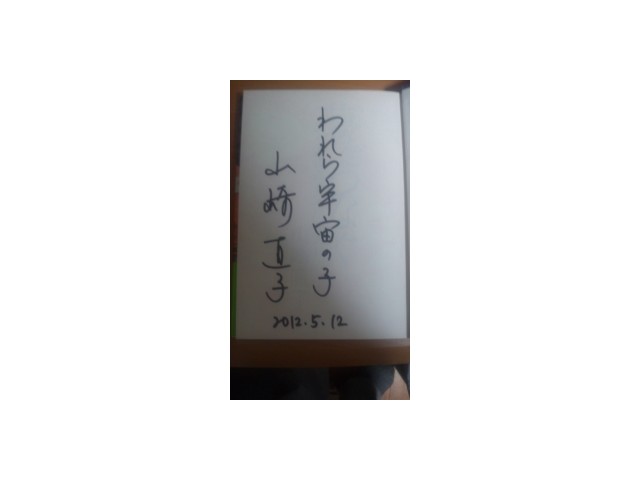 われら宇宙の子
山崎直子
2012.5.12